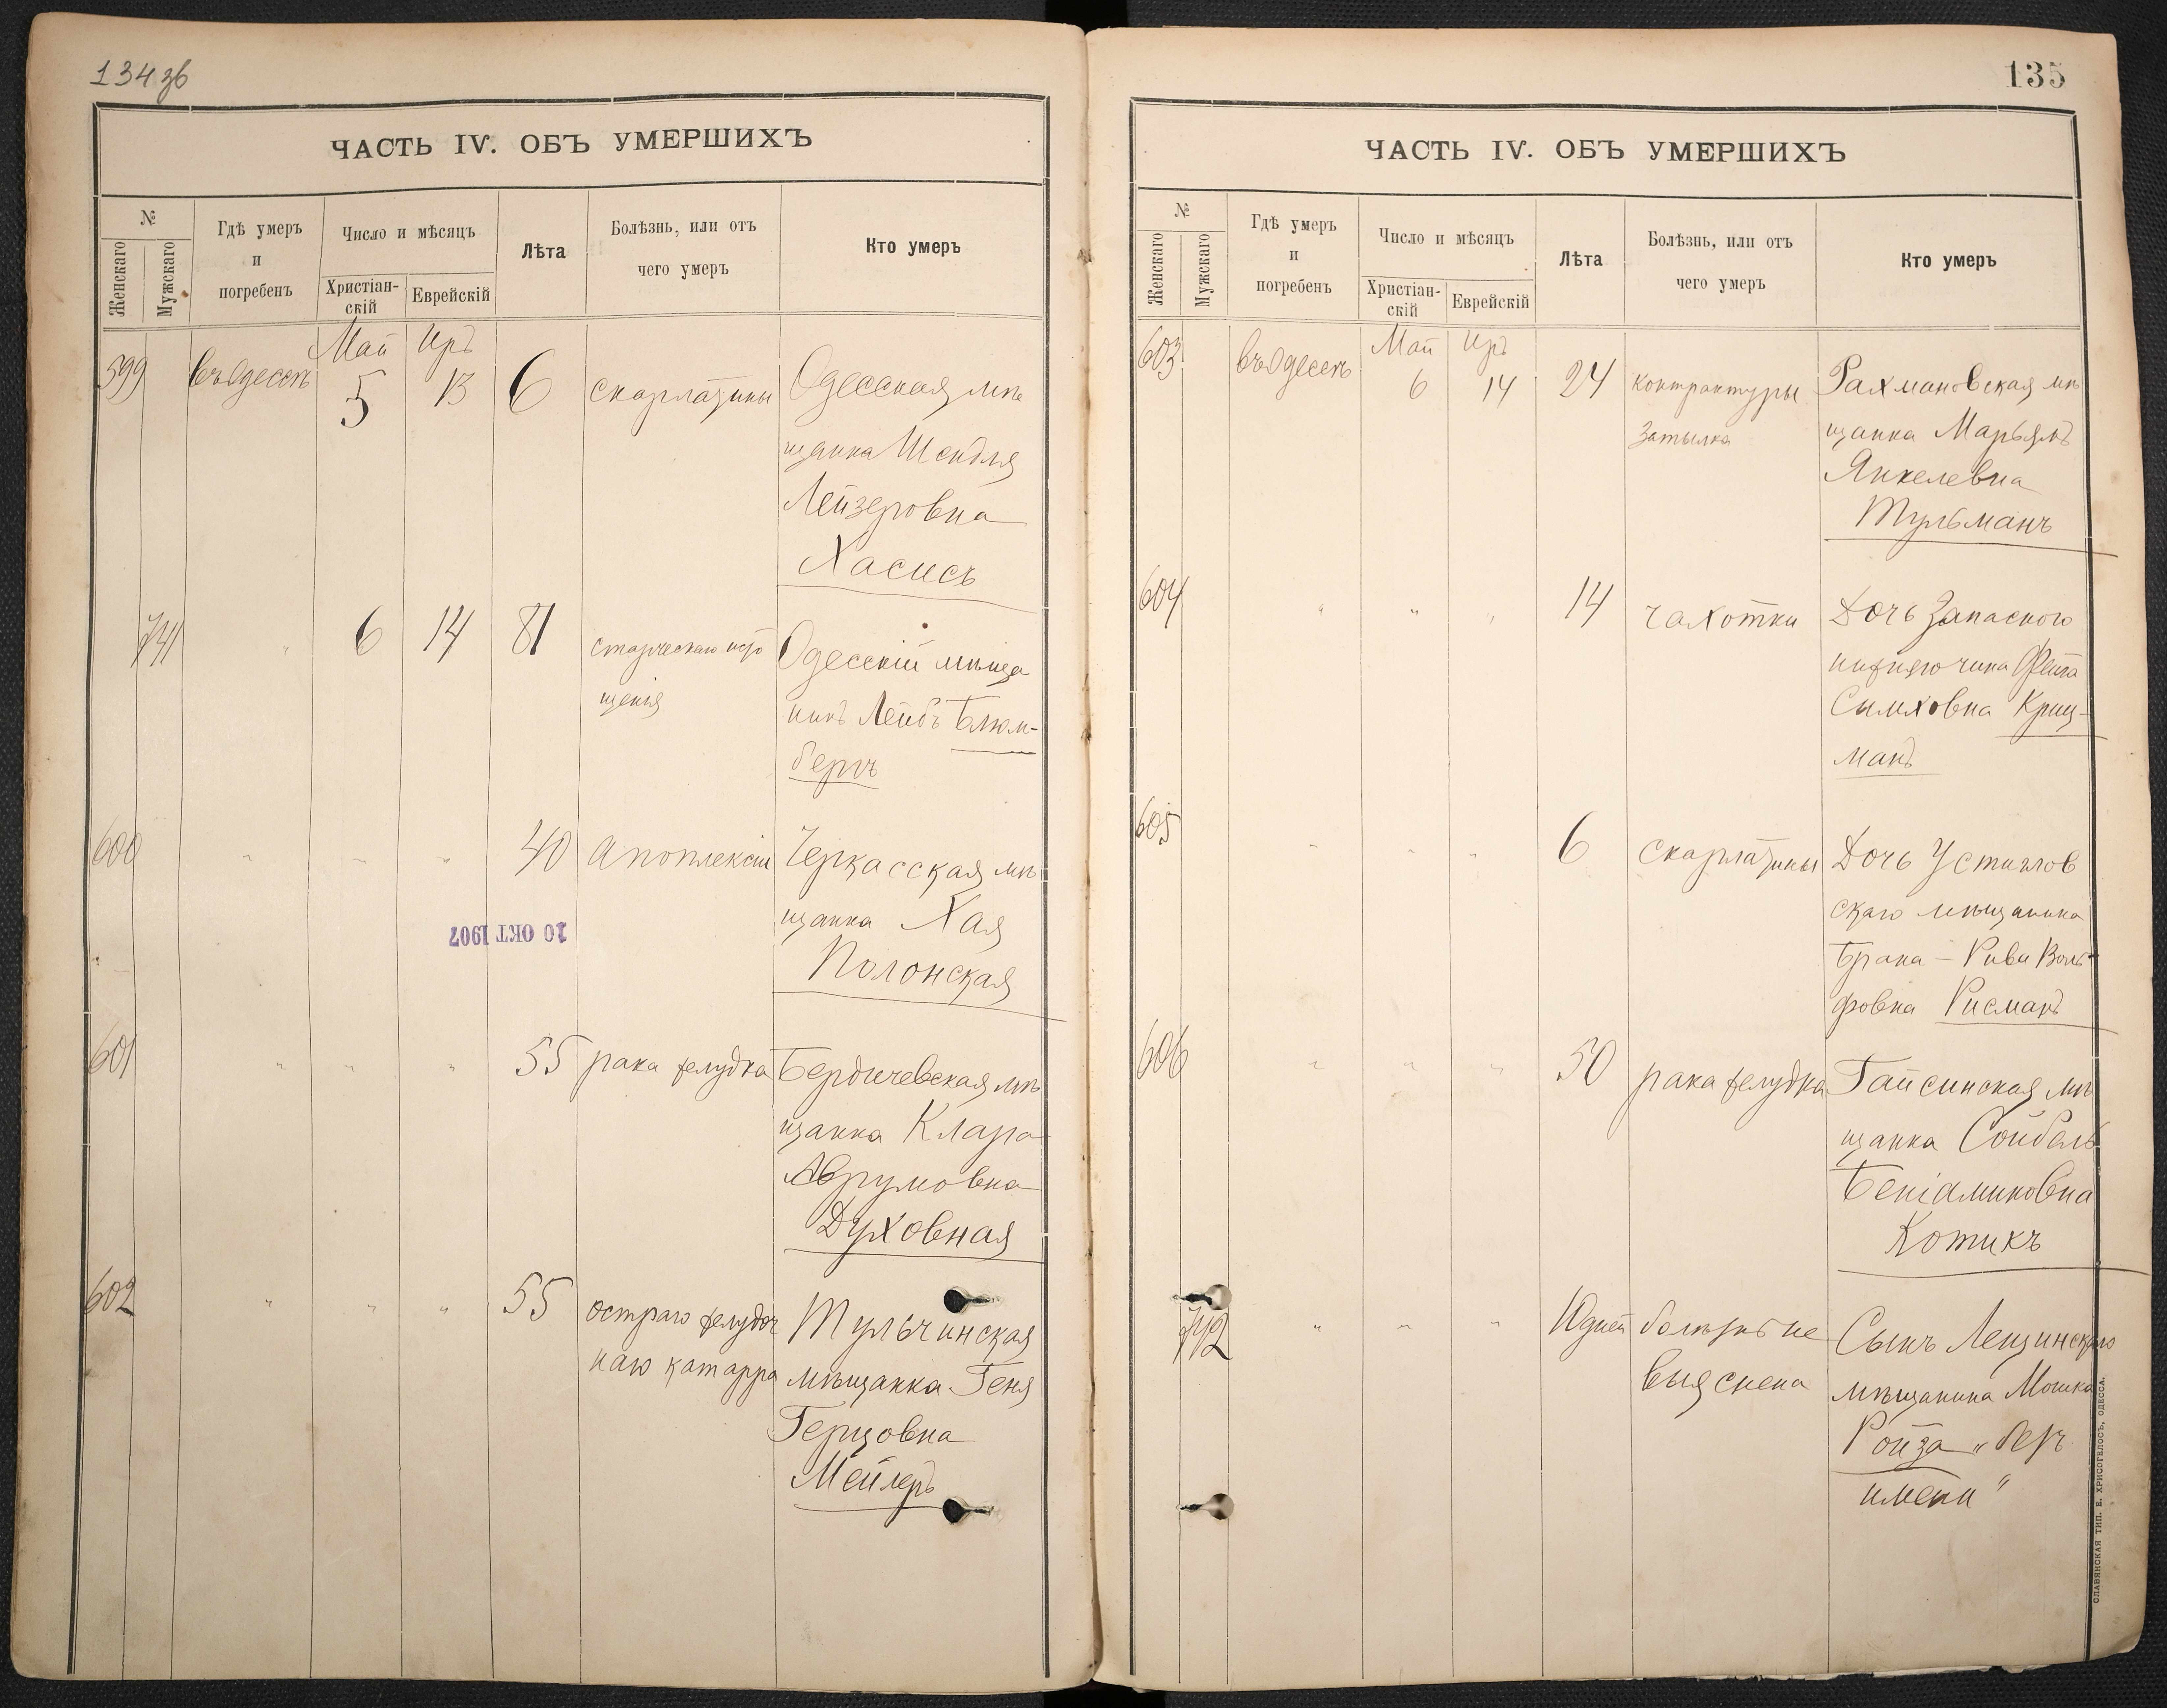 134 зв
ЧАСТЬ IV. ОБЪ УМЕРШИХЪ
№
Женскаго
Мужскаго
Гдѣ умеръ
и
погребенъ
Число и мѣсяцъ
Христіан-
скій
Еврейскій
Лѣта
Болѣзнь, или отъ
чего умеръ
Кто умеръ
Май Иръ
599 въ Одессѣ 5 13 6 скарлатины Одесская мѣ
щанка Шендля
Лейзеровна
Хасисъ
741 " 6 14 81 старческаго исто Одесскій мѣща
щенія нинъ Лейбъ Блюм-
бергъ
600 " " " 40 Апоплексіи Черкасская мѣ
щанка Хая
10 ОКТ 1907
Полонская
601 " " " 55 рака желудка Бердичевская мѣ
щанка Клара
Аврумовна
Духовная
602 " " " 55 остраго желудоч Тульчинская
наго катарра мѣщанка Геня
Герцовна
Мейлеръ
135
ЧАСТЬ IV. ОБЪ УМЕРШИХЪ
№
Женскаго
Мужскаго
Гдѣ умеръ
и
погребенъ
Число и мѣсяцъ
Христіан-
скій
Еврейскій
Лѣта
Болѣзнь, или отъ
чего умеръ
Кто умеръ
Май Иръ
603 въ Одессѣ 6 14 24 контрактуры Рахмановская мѣ
затылка щанка Марьямъ
Янкелевна
Тульманъ
604 " " " 14 чахотки Дочь Запасного
Фейга
Симховна Криц-
манъ
605 " " " 6 скарлатины Дочь Устилов
скаго мѣщанина
брака - Рива Воль-
фовна Рисманъ
606 " " " 50 рака желудка Гайсинская мѣ
щанка Сойбель
Беніаминовна
Котикъ
742 " " " 10 дней болѣзнь не Сынъ Лещинскаго
выяснена мѣщанина Мошка
Ройза "безъ
имени"
СЛАВЯНСКАЯ ТИП. Е. ХРИСОГЕЛОСЪ, ОДЕССА.